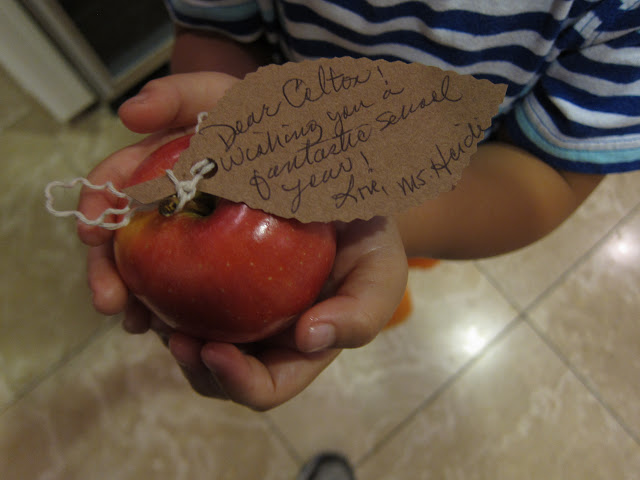 Dear Celton!
Wishing you a
fantastic school
year!
Love, Ms Heidi